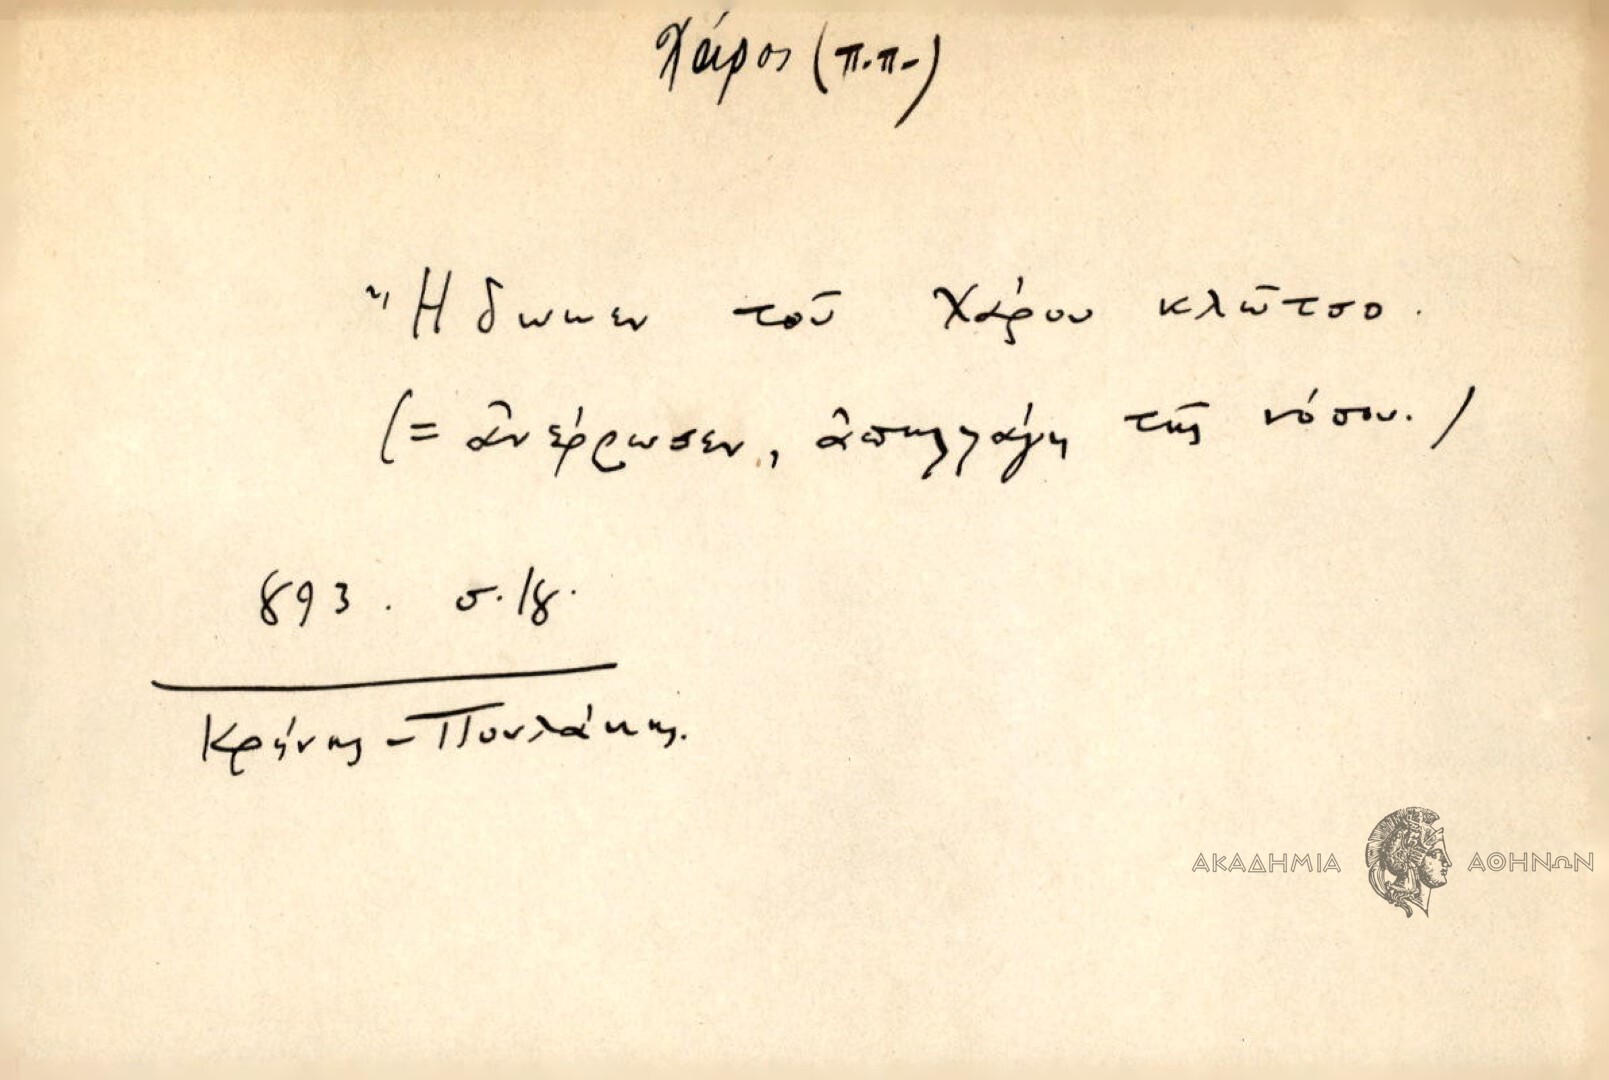 Χάρος (π.π.)
Ἤδωκεν τοῦ Χάρου κλῶτσο.
(= ἀνέρρωσεν, ἀπηλλάγη τῆς νόσου.)
893. σ. 18.
Κρήνης - Πουλάκης.
ΑΚΑΔΗΜΙΑ ΑΘΗΝΩΝ